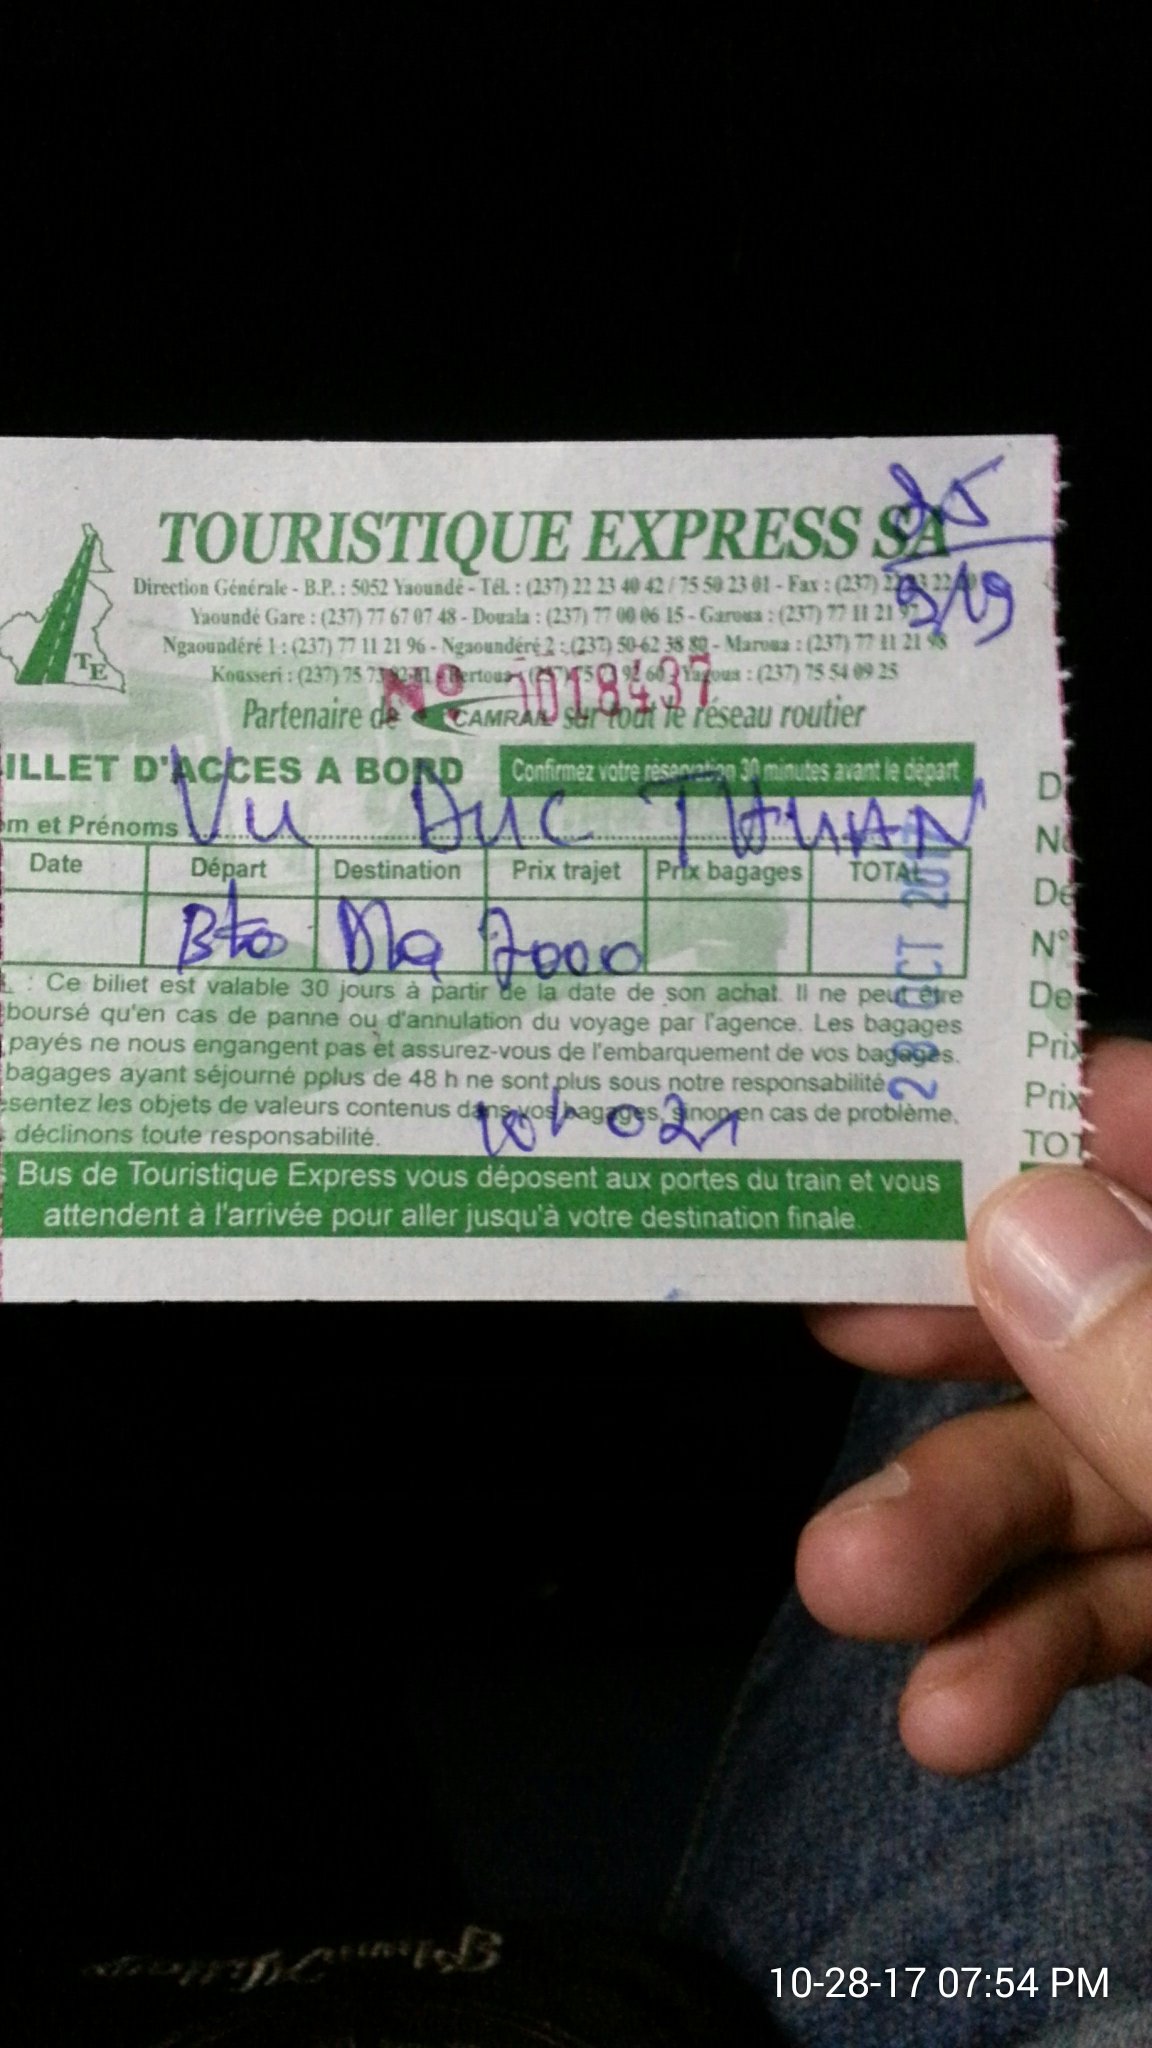 25
TOURISTIQUE EXPRESS SA
219
Direction Générale - B.P. : 5052 Yaoundé - Tél. : (237) 22 23 40 42 / 75 50 23 01 - Fax : (237)
Yaoundé Gare : (237) 77 67 07 48 - Douala : (237) 77 00 06 15 - Garoua : (237) 77 11 21 97
Ngaoundéré 1 : (237) 77 11 21 96 - Ngaoundéré 2 : (237) 50-62 38 80 - Maroua : (237) 77 11 21 98
Kousseri : (237) 75 73 - Bertoua : (237) 92 60 - Yagoua : (237) 75 54 09 25
N° 1018437
Partenaire de CAMRAIL sur tout le réseau routier
ILLET D'ACCES A BORD Confirmez votre réservation 30 minutes avant le départ
m et Prénoms VU DUC THUAN
Date Départ Destination Prix trajet Prix bagages TOTAL
Bto Dla 7000
28 OCT 2017
: Ce billet est valable 30 jours à partir de la date de son achat. Il ne peut être
boursé qu'en cas de panne ou d'annulation du voyage par l'agence. Les bagages
payés ne nous engangent pas et assurez-vous de l'embarquement de vos bagages.
bagages ayant séjourné pplus de 48 h ne sont plus sous notre responsabilité
sentez les objets de valeurs contenus dans vos bagages, sinon en cas de problème,
déclinons toute responsabilité.
Bus de Touristique Express vous déposent aux portes du train et vous
attendent à l'arrivée pour aller jusqu'à votre destination finale.
D
No
Dé
N°
De
Prix
Prix
TOT
10-28-17 07:54 PM